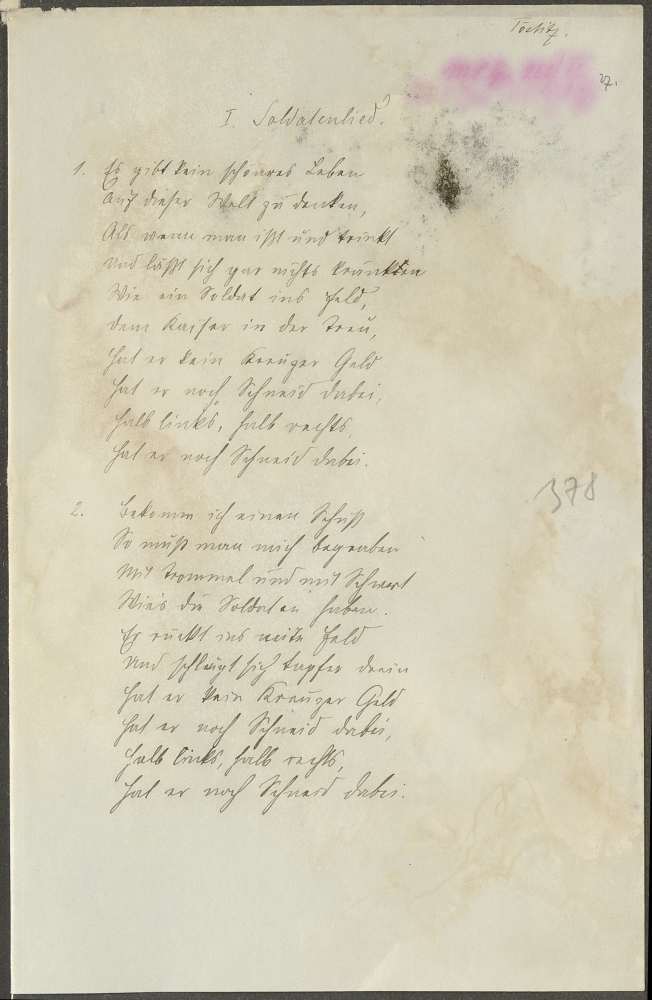 Töchitz.
27.
I. Soldatenlied.
1. Es gibt kein schönres Leben
Auf dieser Welt zu denken,
Als wenn man ißt und trinkt
Und läßt sich gar nichts kränken
Wie ein Soldat ins Feld,
Dem Kaiser in der Treu,
Hat er kein Kreuzer Geld
Hat er noch Schneid dabei,
Halb links, halb rechts,
Hat er noch Schneid dabei.
378
2. Bekomm ich einen Schuß
So muß man mich begraben
Mit Trommel und mit Schwert
Wie's die Soldaten haben.
Er rückt ins weite Feld
Und schlägt sich tapfer drein
Hat er kein Kreuzer Geld
Hat er noch Schneid dabei,
Halb links, halb rechts,
Hat er noch Schneid dabei.